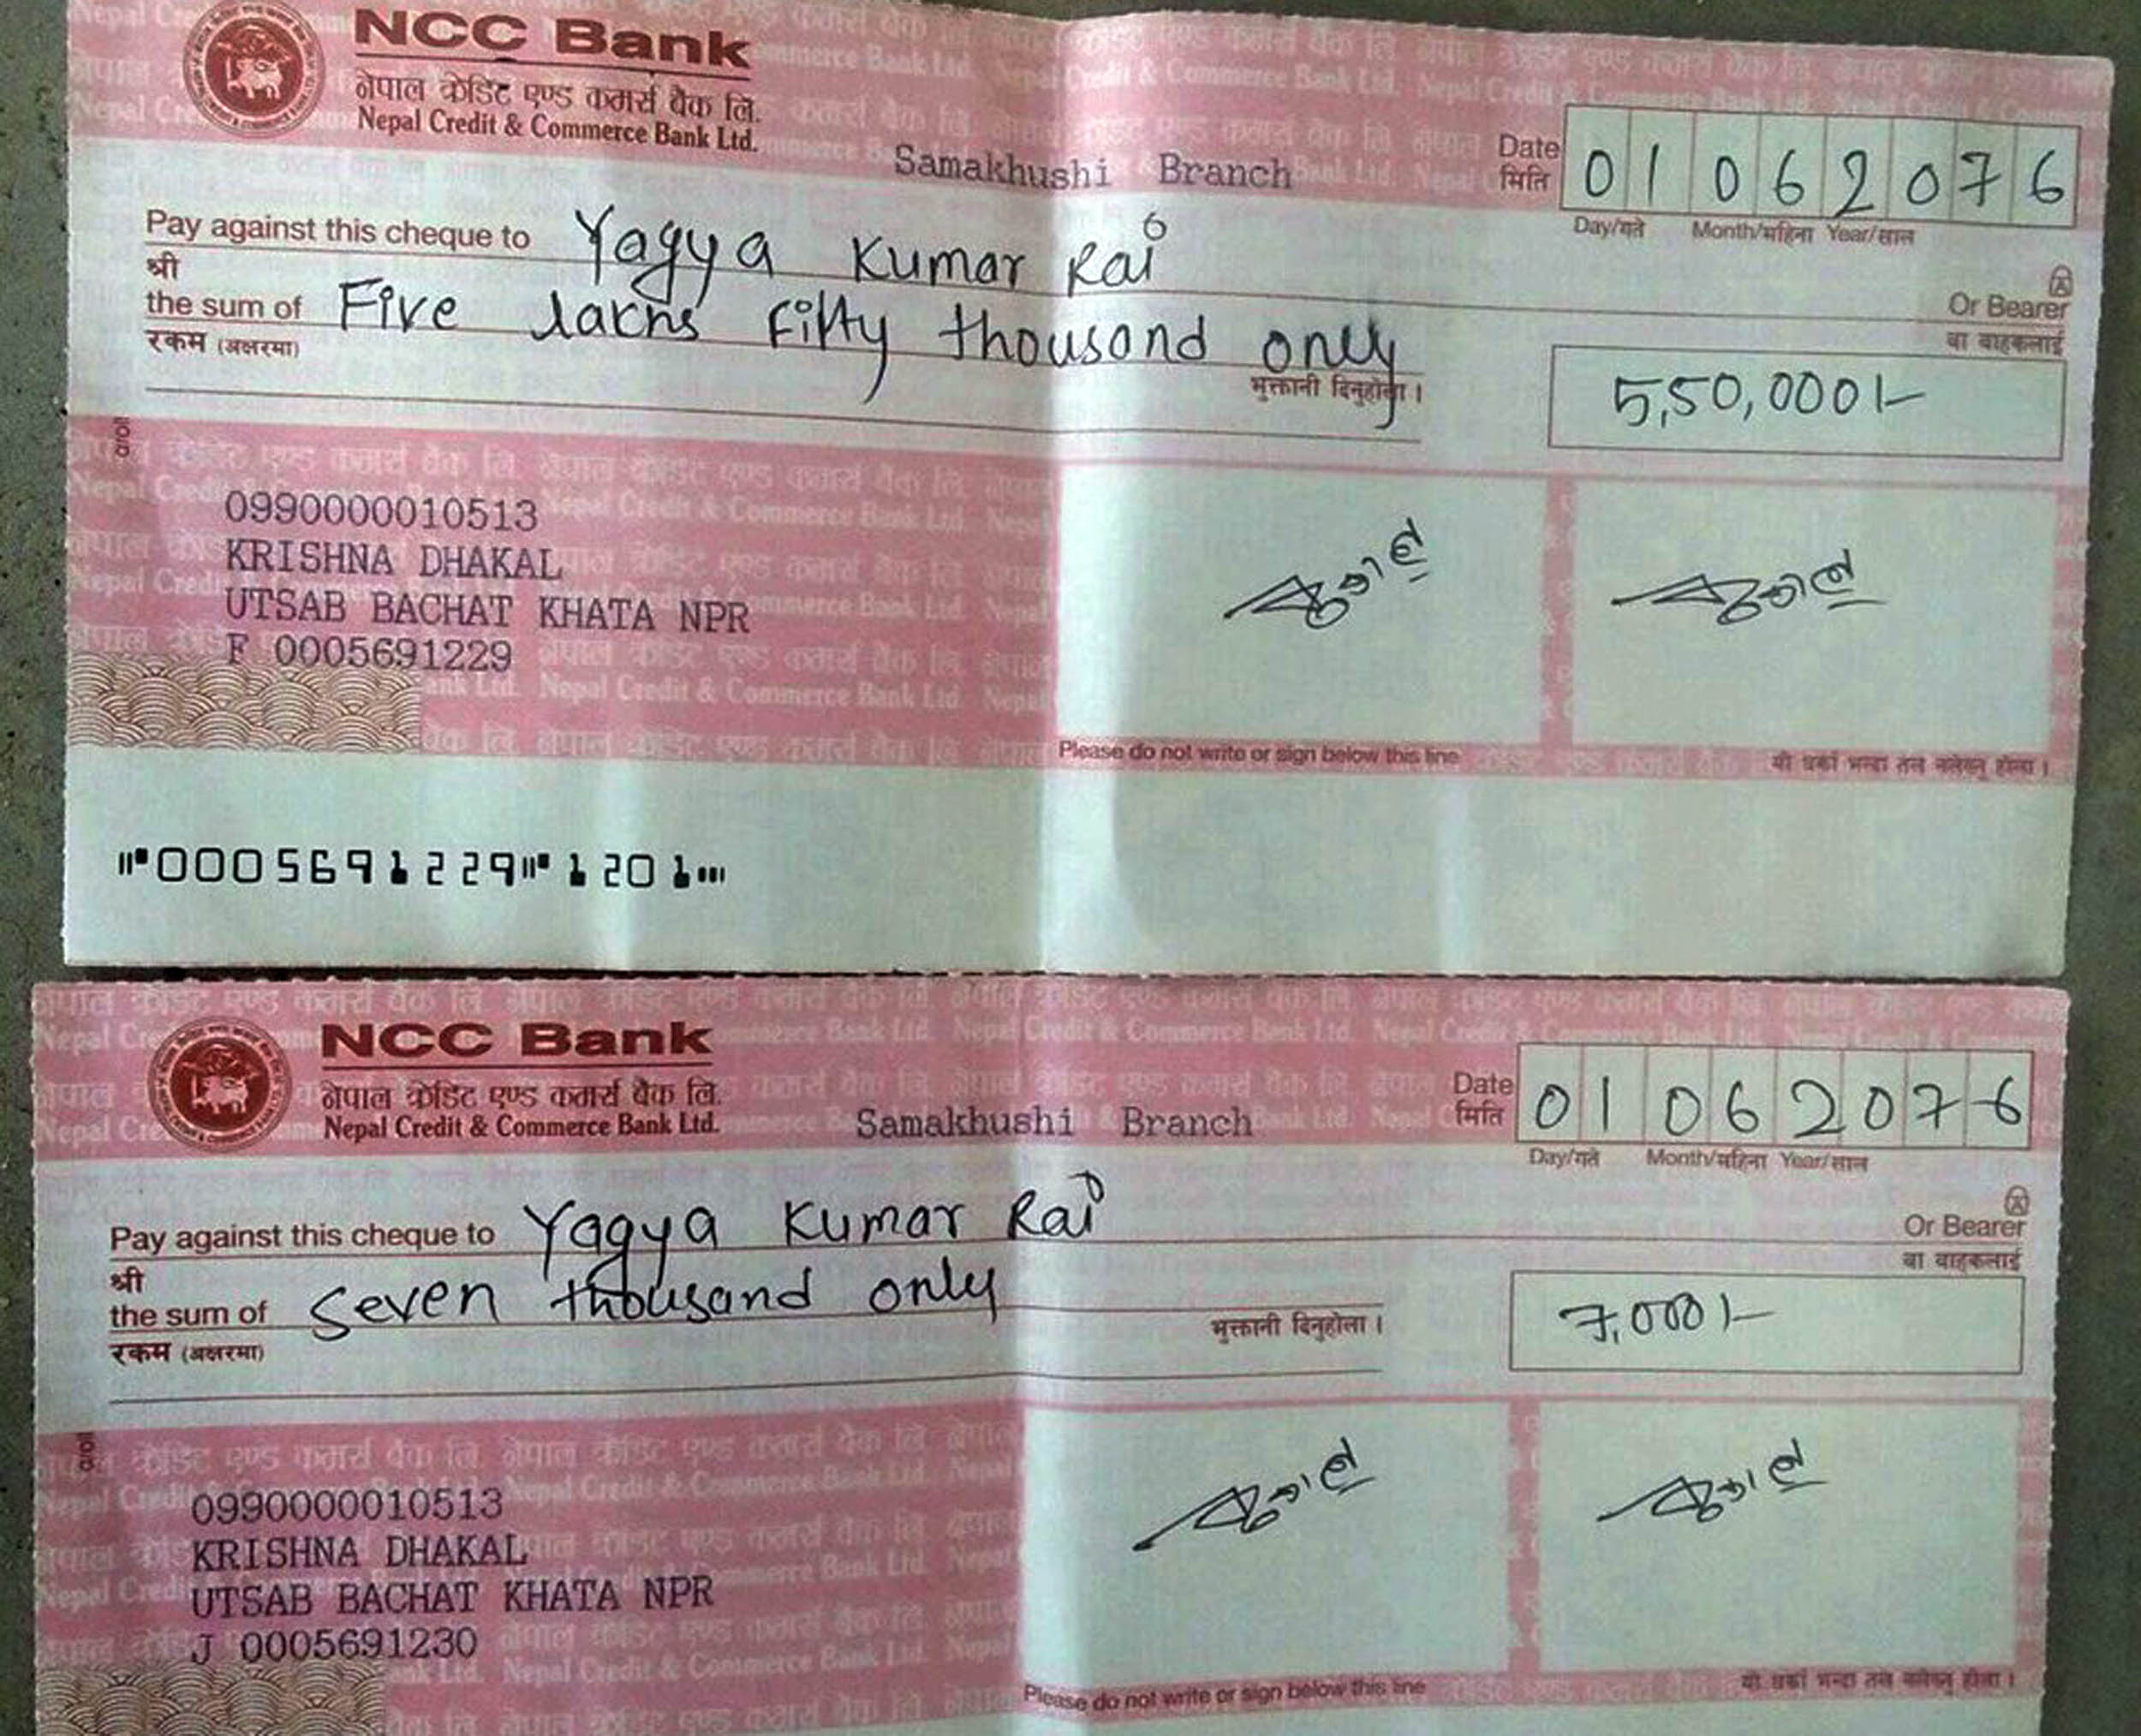 NCC Bank
नेपाल क्रेडिट एण्ड कमर्स बैंक लि.
Nepal Credit & Commerce Bank Ltd.
Samakhushi Branch
Date 01 06 2076
मिति
Day/गते Month/महिना Year/साल
Pay against this cheque to Yagya Kumar Rai
श्री
Or Bearer
the sum of Five lakhs fifty thousand only
वा वाहकलाई
रकम (अक्षरमा)
भुक्तानी दिनुहोला ।
5,50,000/-
0990000010513
KRISHNA DHAKAL
UTSAB BACHAT KHATA NPR
F 0005691229
Please do not write or sign below this line
यो धर्का भन्दा तल नलेख्नु होला ।
0005691229 1201
NCC Bank
नेपाल क्रेडिट एण्ड कमर्स बैंक लि.
Nepal Credit & Commerce Bank Ltd.
Samakhushi Branch
Date 01 06 2076
मिति
Day/गते Month/महिना Year/साल
Pay against this cheque to Yagya Kumar Rai
श्री
Or Bearer
the sum of Seven thousand only
वा वाहकलाई
रकम (अक्षरमा)
भुक्तानी दिनुहोला ।
7,000/-
0990000010513
KRISHNA DHAKAL
UTSAB BACHAT KHATA NPR
J 0005691230
Please do not write or sign below this line
यो धर्का भन्दा तल नलेख्नु होला ।